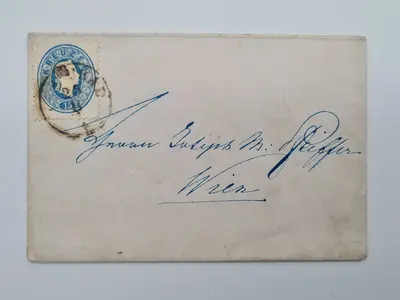 KREUZER
15
Herrn Joseph M: Pfeiffer
Wien